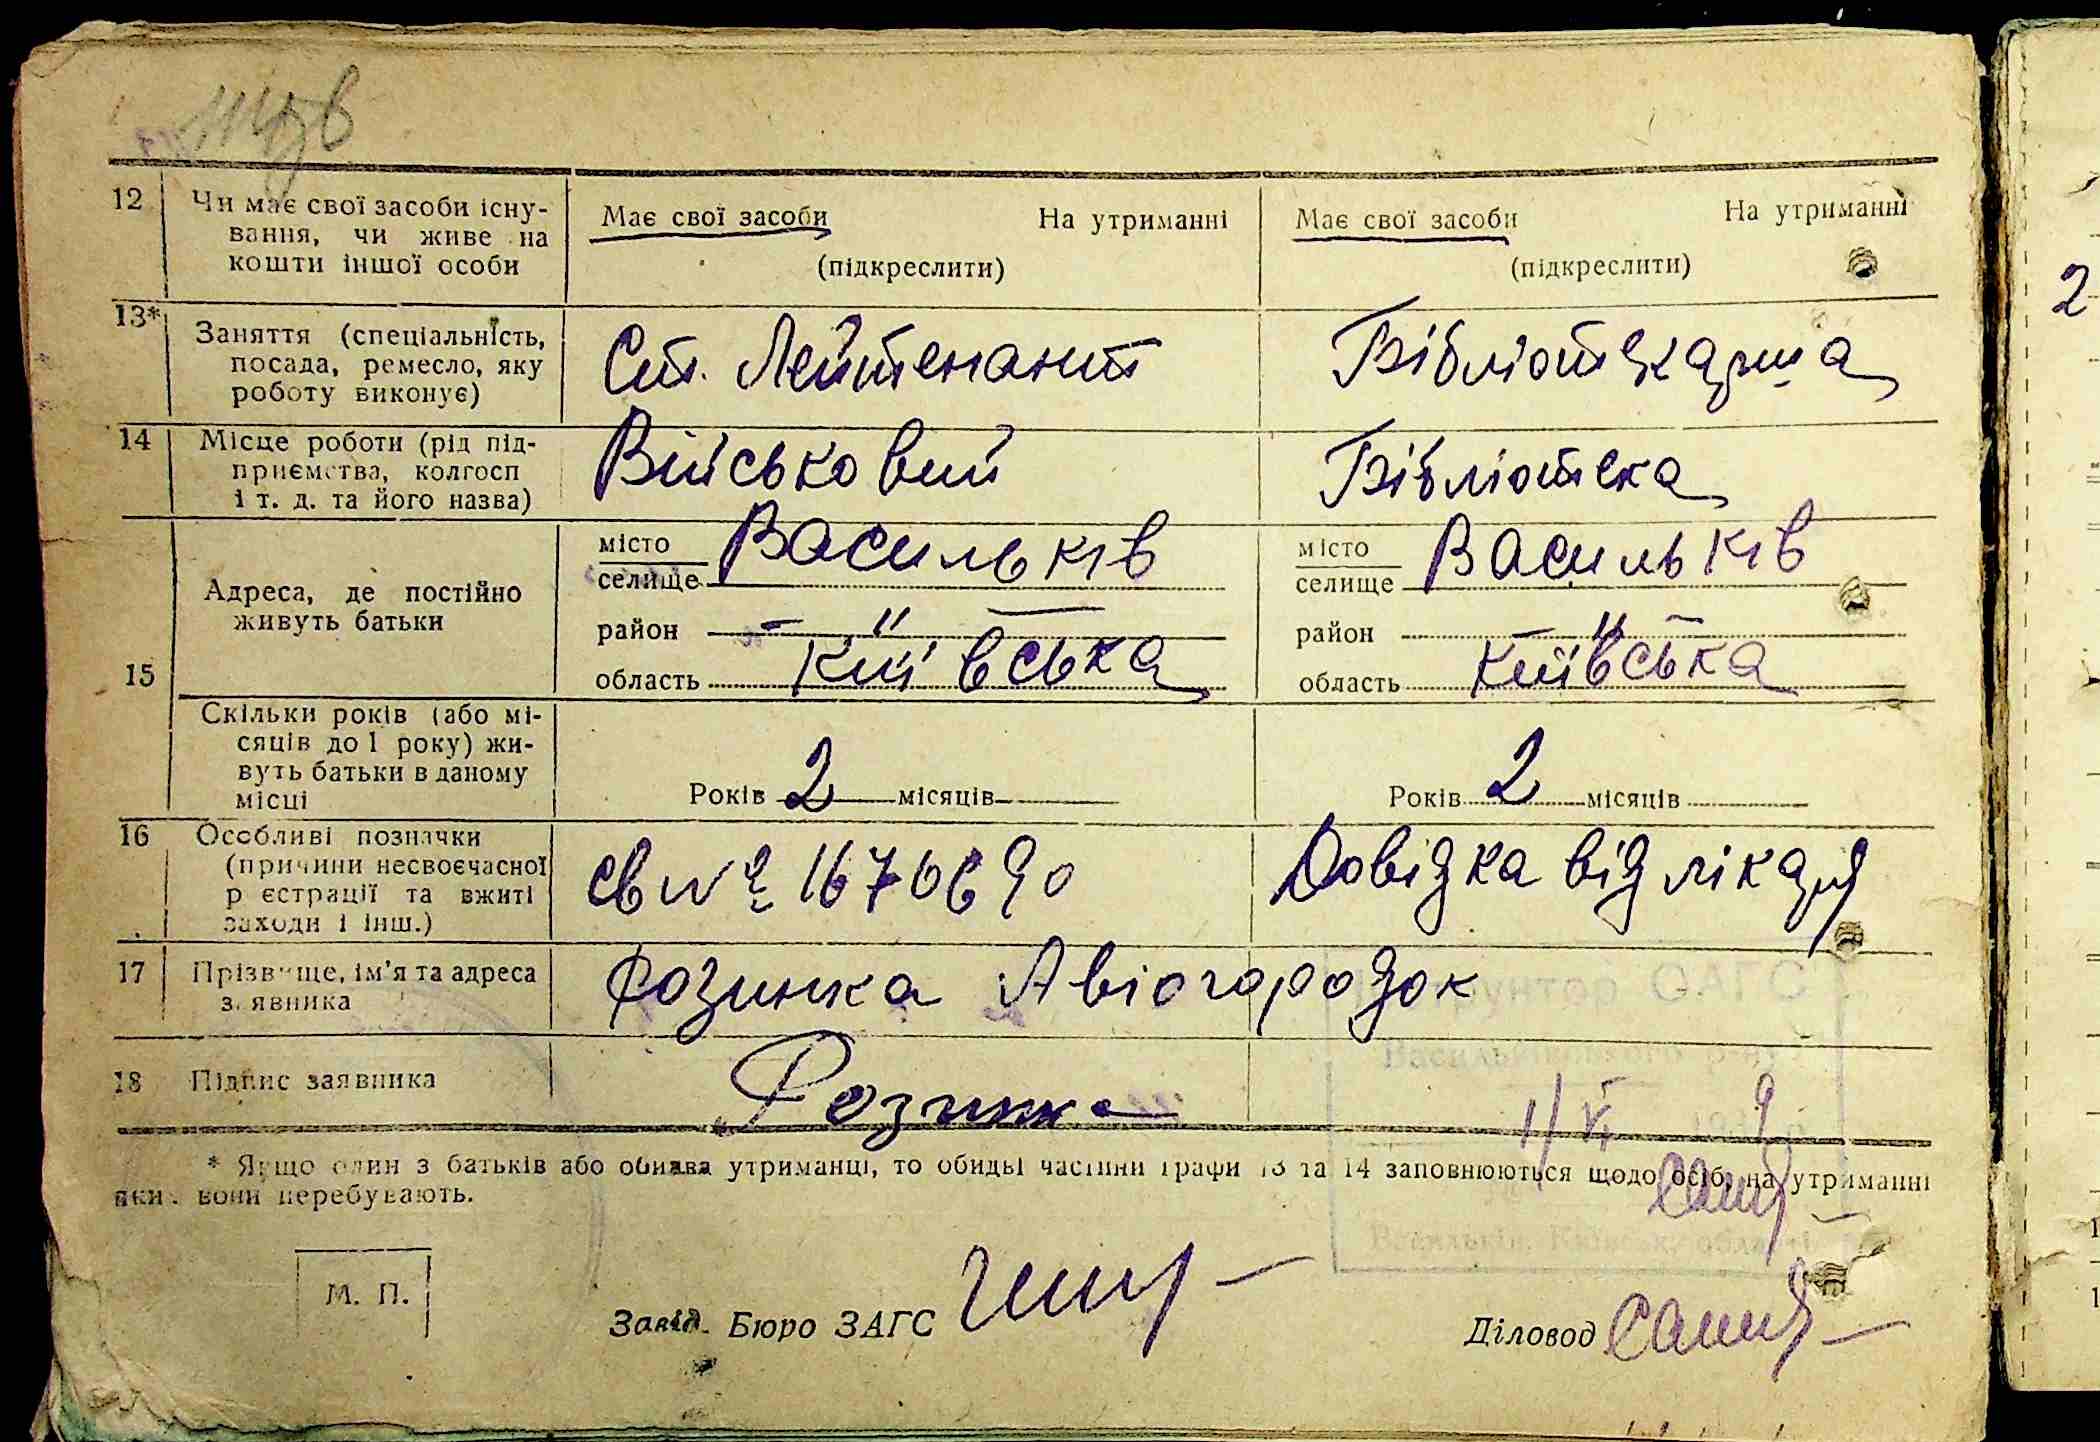 12 Чи має свої засоби існу-
вання, чи живе на
кошти іншої особи
Має свої засоби На утриманні
(підкреслити)
Має свої засоби На утриманні
(підкреслити)
13* Заняття (спеціальність,
посада, ремесло, яку
роботу виконує)
Ст. Лейтенант
Бібліотекарша
14 Місце роботи (рід під-
приємства, колгосп
і т. д. та його назва)
Військовий
Бібліотека
15 Адреса, де постійно
живуть батьки
місто Васильків
селище
район — " —
область Київська
місто Васильків
селище
район — " —
область Київська
Скільки років (або мі-
сяців до 1 року) жи-
вуть батьки в даному
місці
Років 2 місяців
Років 2 місяців
16 Особливі позначки
(причини несвоєчасної
реєстрації та вжиті
заходи і інш.)
св № 1670690
Довідка від лікаря
17 Прізвище, ім'я та адреса
заявника
Розинка Авіогородок
18 Підпис заявника
Розинка
ЗАГС
Васильківського р-ну
1/VI 1939 р.
Васильків, Київськ. області
* Якщо один з батьків або обидва утриманці, то обидві частини графи 13 та 14 заповнюються щодо осіб, на утриманні
яких вони перебувають.
М. П.
Завід. Бюро ЗАГС
Діловод
2